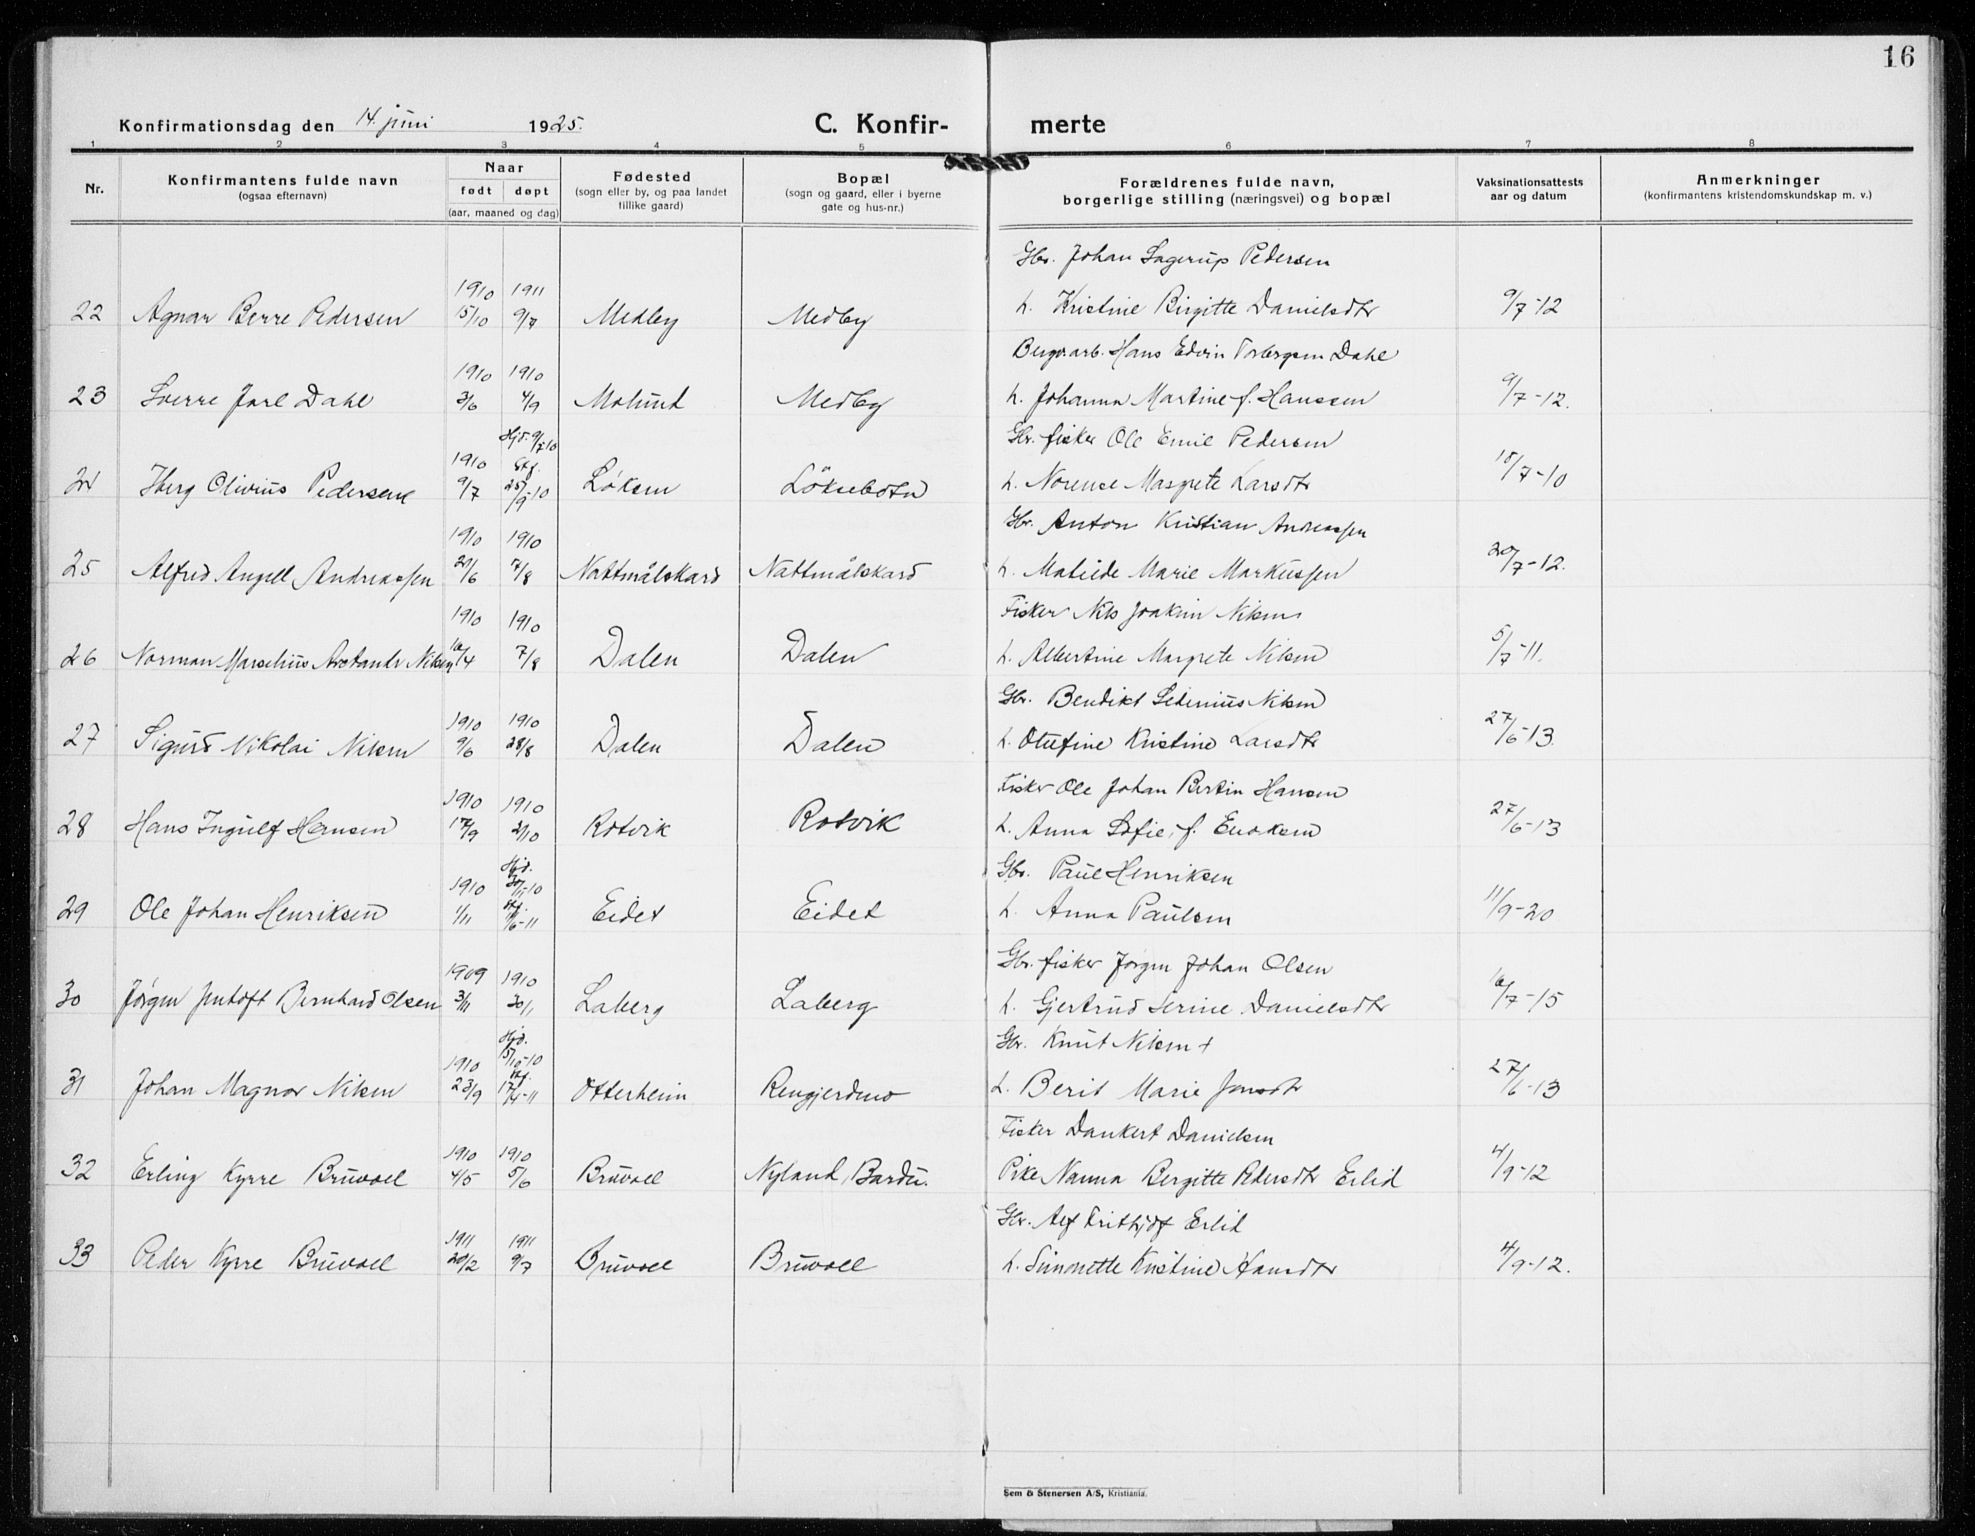 16
Konfirmationsdag den 14. juni 1925.
C. Konfir- merte
1 2 3 4 5 6 7 8
Nr.
Konfirmantens fulde navn
(ogsaa efternavn)
Naar
født døpt
(aar, maaned og dag)
Fødested
(sogn eller by, og paa landet
tillike gaard)
Bopæl
(sogn og gaard, eller i byerne
gate og hus-nr.)
Forældrenes fulde navn,
borgerlige stilling (næringsvei) og bopæl
Vaksinationsattests
aar og datum
Anmerkninger
(konfirmantens kristendomskundskap m. v.)
Gbr. Johan Lagerup Pedersen
1910 1911
22 Agnar Berre Pedersen 15/10 9/7 Medby Medby h. Kristine Birgitte Danielsdtr 9/7-12
Bergv.arb. Hans Edvin Torbergsen Dahl
1910 1910
23 Sverre Jarl Dahl 3/6 4/9 Molund Medby h. Johanna Martine f. Hanssen 9/7-12.
Hjd. 9/7-10
Gbr. fisker Ole Emil Pedersen
1910 Stf.
24 Iberg Olivius Pedersen 9/7 25/9-10 Løksen Löksebotn h. Norense Margrete Larsdtr 18/7-10
Gbr. Anton Kristian Andreassen
1910 1910
25 Alfred Angell Andreassen 20/6 7/8 Nattmålskard Nattmålskard h. Matilde Marie Markussen 20/7-12.
Fisker Nils Joakim Nilsen
1910 1910
26 Norman Marselius Nilsen 10/4 7/8 Dalen Dalen h. Albertine Margrete Nilsen 5/7-11.
Gbr. Bendikt Sedenius Nilsen
1910 1910
27 Sigurd Nikolai Nilsen 9/6 28/8 Dalen Dalen h. Olufine Kristine Larsdtr 27/6-13.
Fisker Ole Johan Bertin Hansen
1910 1910
28 Hans Ingulf Hansen 17/9 2/10 Rotvik Rotvik h. Anna Sofie, f. Enoksen 27/6-13
Hjd.
Gbr. Paul Henriksen
1910 30/11-10
Stf.
29 Ole Johan Henriksen 1/11 11/6-11 Eidet Eidet h. Anna Paulsen 11/9-20
Gbr. fisker Jørgen Johan Olsen
1909 1910
30 Jørgen Jentoft Bernhard Olsen 3/11 30/1 Laberg Laberg h. Gjertrud Serine Danielsdtr 16/7-15
Hjd.
Gbr. Knut Nilsen +
1910 15/10-10
Stf.
31 Johan Magnor Nilsen 23/9 17/4-11 Otterheim Rengjerdmo h. Berit Marie Jonsdtr 27/6-13
Fisker Dankert Danielsen
1910 1910
32 Erling Kyrre Bruvoll 4/5 5/6 Bruvoll Nyland, Bardu. Pike Nanna Bergitte Pedersdtr Erlid 4/9-12
Gbr. Alf Fritjof Erlid
1911 1911
33 Peder Kyrre Bruvoll 20/2 9/7 Bruvoll Bruvoll h. Simonette Kristine Hansdtr 4/9-12.
Sem & Stenersen A/S, Kristiania.